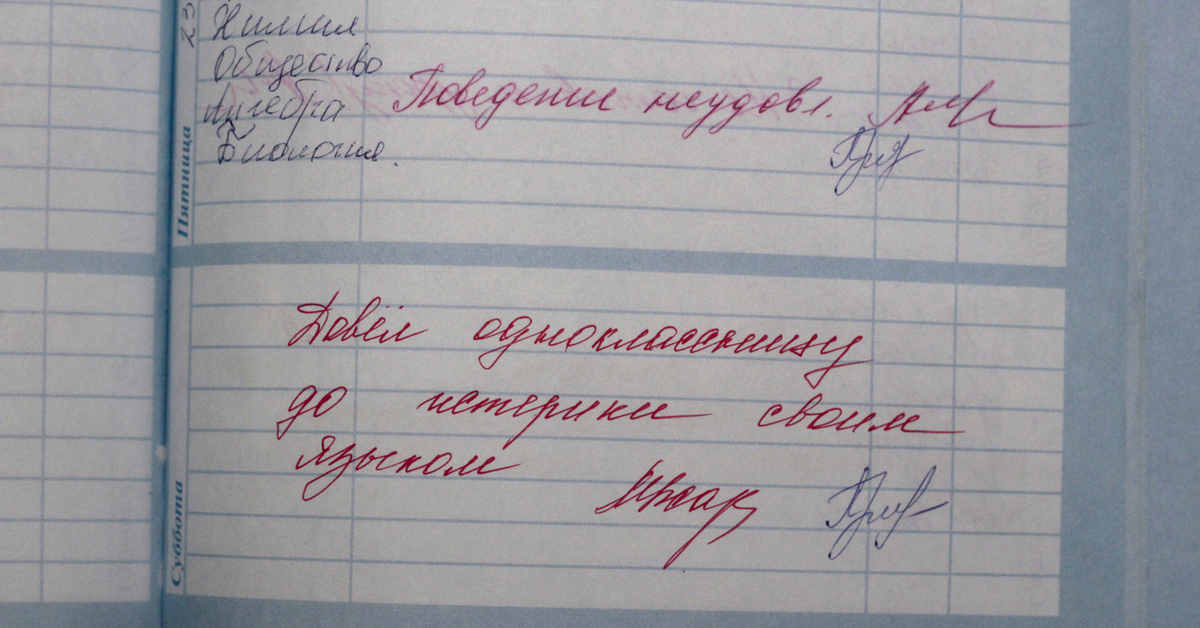 Химия
Общество
Алгебра Поведение неудовл.
Биология.
Пятница
Довёл одноклассницу
до истерики своим
языком
Суббота